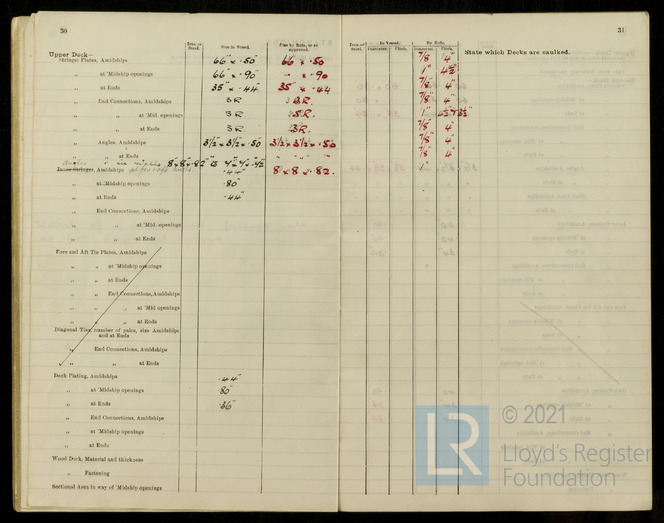 30
Iron or Steel. Size in Vessel. Size by Rule, or as approved.
Upper Deck—
Stringer Plates, Amidships 66" x .50" 66" x .50
„ at 'Midship openings 66" x .90" " x .90
„ at Ends 35" x .44 35" x .44
„ End Connections, Amidships 3R 3R.
„ „ at 'Mid. openings 3R 5R.
„ „ at Ends 3R 3R.
„ Angles, Amidships 3½" x 3½" x .50 3½ x 3½ x .50
„ „ at Ends " " "
Angles
Inner Stringer, Amidships .44" 8 x 8 x .82.
„ at 'Midship openings .80"
„ at Ends .44"
„ End Connections, Amidships
„ „ at 'Mid. openings
„ „ at Ends
Fore and Aft Tie Plates, Amidships
„ „ at 'Midship openings
„ „ at Ends
„ „ End Connections, Amidships
„ „ „ at 'Mid openings
„ „ „ at Ends
Diagonal Ties, number of pairs, size Amidships
and at Ends
„ End Connections, Amidships
„ „ at Ends
Deck Plating, Amidships .44"
„ at 'Midship openings .80"
„ at Ends .36"
„ End Connections, Amidships
„ at 'Midship openings
„ at Ends
Wood Deck, Material and thickness
„ Fastening
Sectional Area in way of 'Midship openings
31
Iron or Steel. In Vessel. By Rule.
Diameter. Pitch. Diameter. Pitch. State which Decks are caulked.
7/8 4"
1" 4½"
7/8" 4"
7/8" 4"
1"
7/8" 4"
7/8" 4"
7/8" 4"
1"
LR
© 2021
Lloyd's Register
Foundation